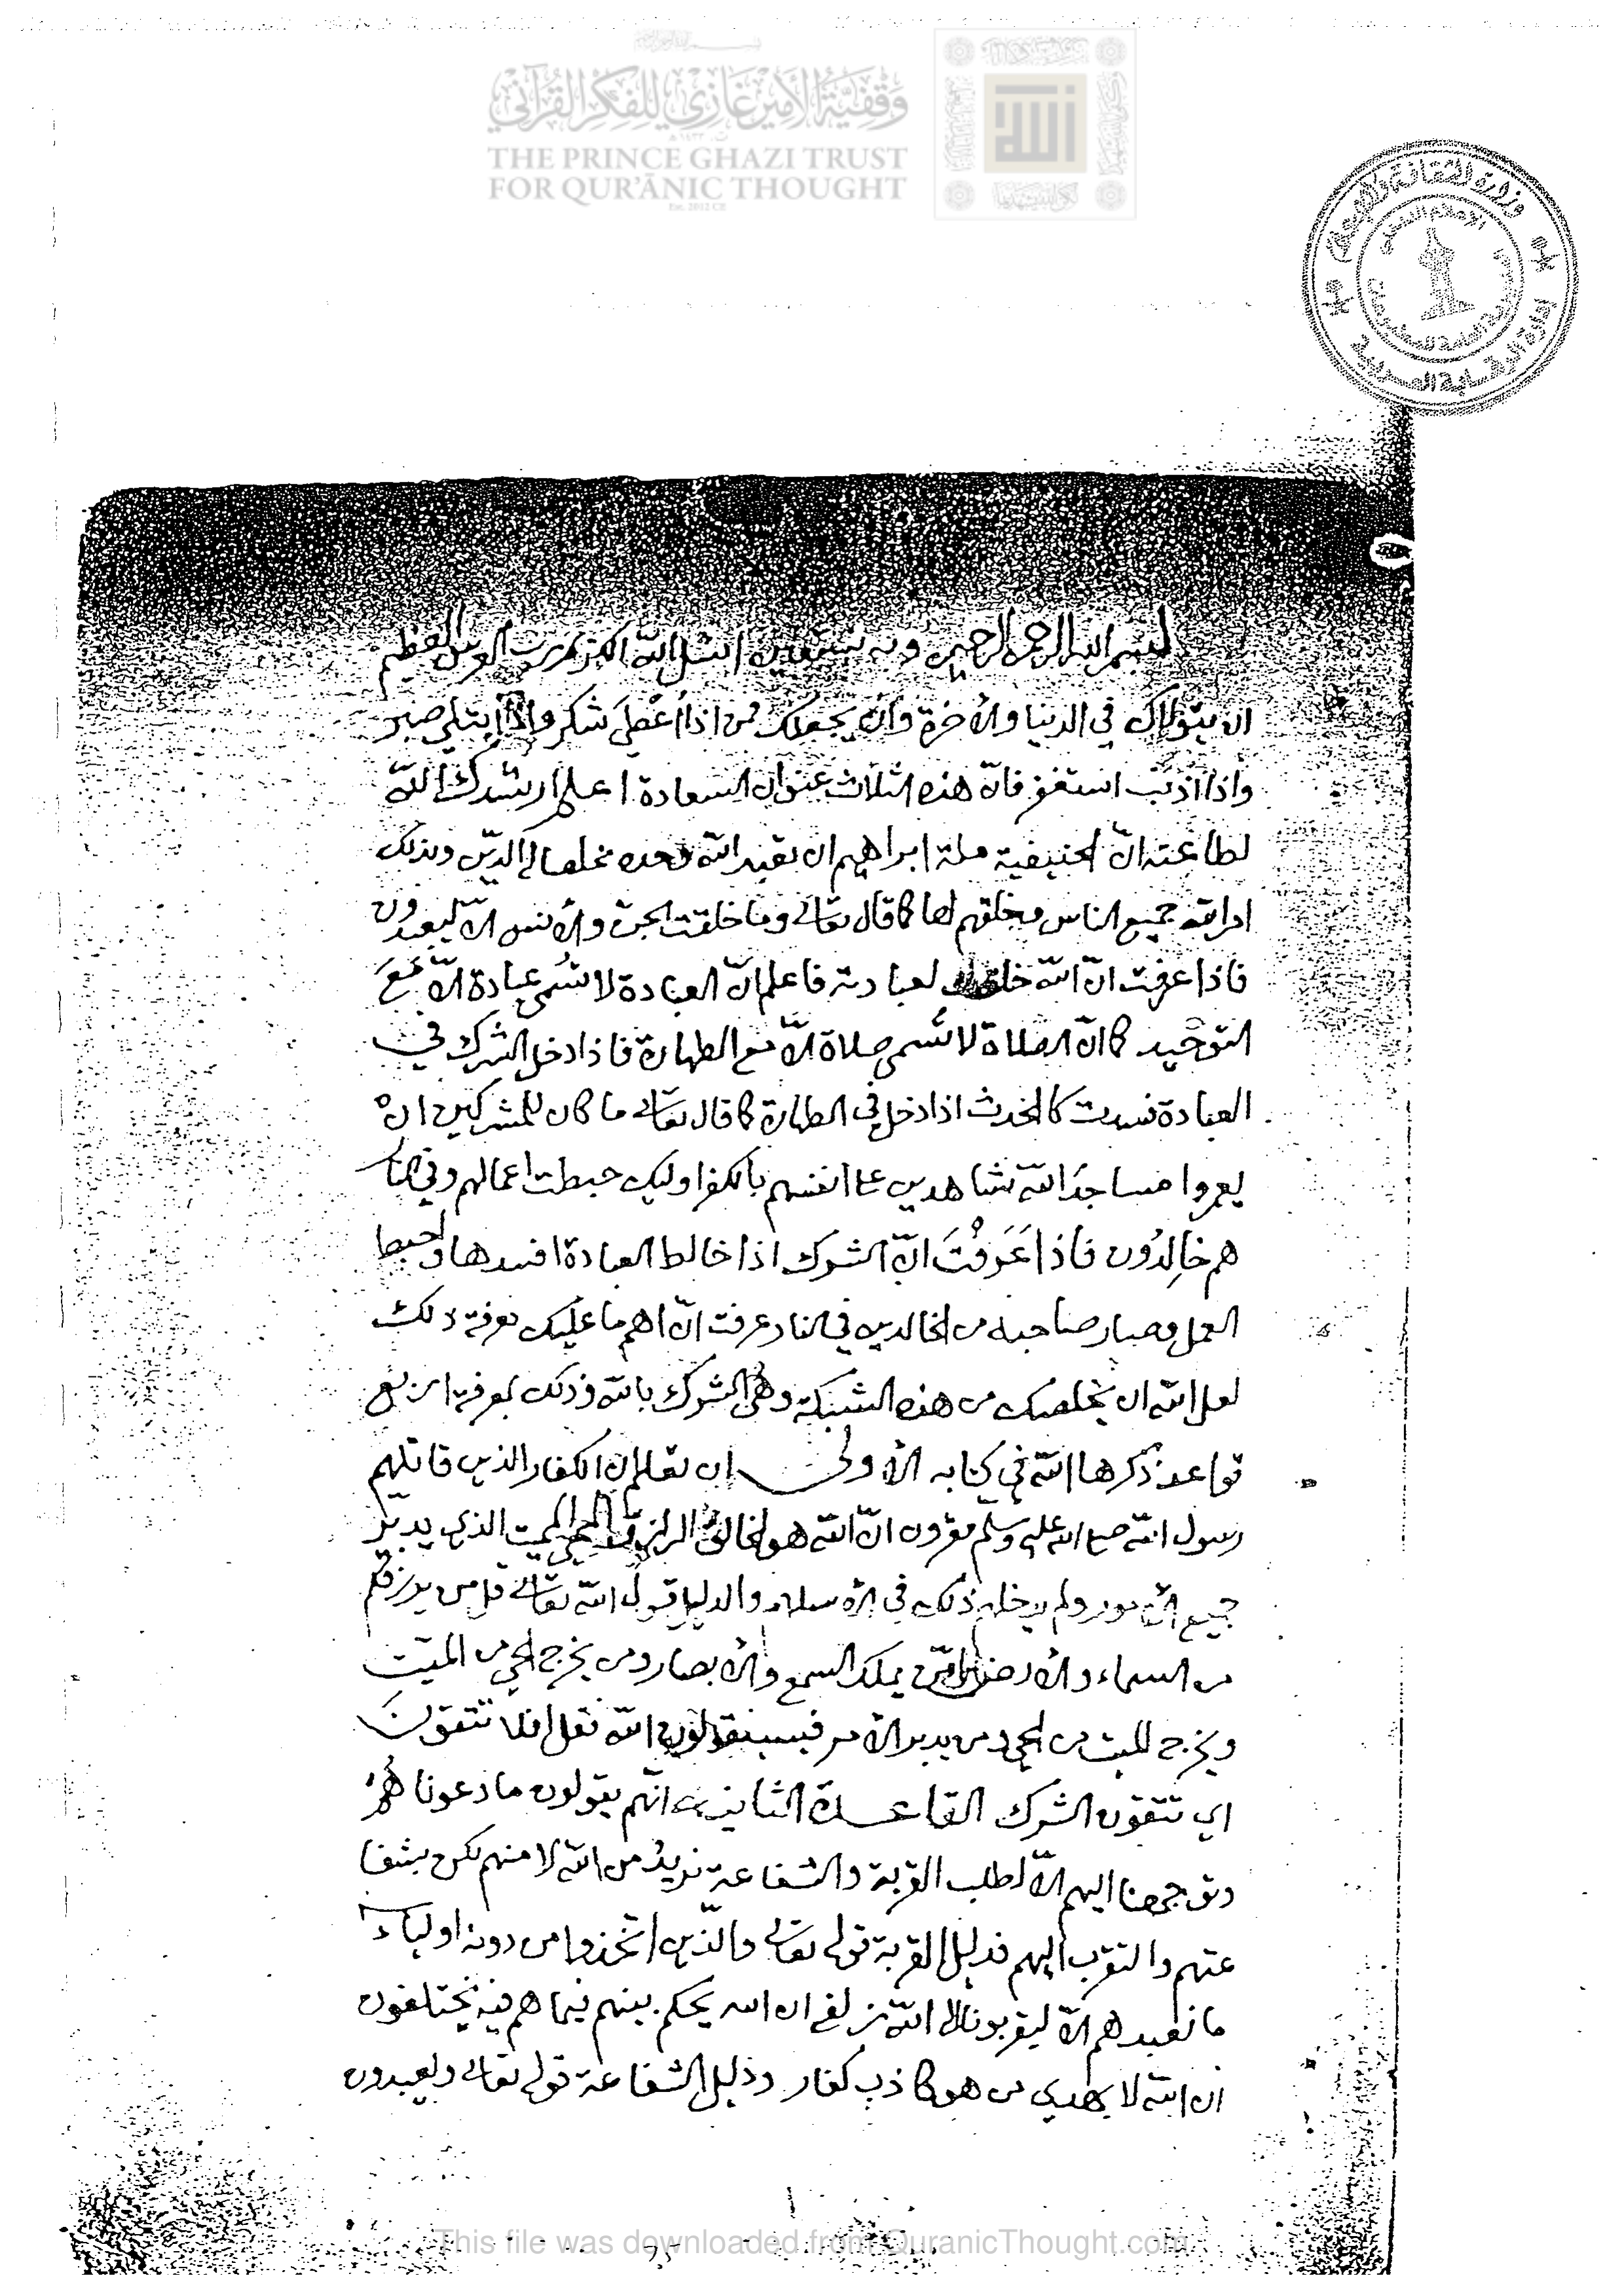 وقفية الأمير غازي للفكر القرآني
THE PRINCE GHAZI TRUST
FOR QUR'ĀNIC THOUGHT
Est. 2012 CE
الله
وزارة الثقافة والإعلام
بسم الله الرحمن الرحيم وبه نستعين اسئل الله الكريم رب العرش العظيم
ان يتولاك في الدنيا والاخرة وان يجعلك ممن اذا أعْطي شكر واذا ابتلي صبر
واذا اذنب استغفر فانّ هذه الثلاث عنوان السعادة اعلم ارشدك اللّه
لطاعته انّ الحنيفية ملة ابراهيم ان تعبد اللّه وحده مخلصا له الدّين وبذلك
امر اللّه جميع الناس وخلقهم لها كما قال تعالى وما خلقت الجن والانس الّا ليعبدون
فاذا عرفت انّ اللّه خلقك لعبادته فاعلم انّ العبادة لا تُسمى عبادة الّا مَعَ
التوحيد كما انّ الصلاة لا تُسمى صلاة الّا مع الطهارة فاذا دخل الشرك في
العبادة فسدت كالحدث اذا دخل في الطهارة كما قال تعالى ما كان للمشركين ان
يعمروا مساجدَ اللّه شاهدين على انفسهم بالكفر اوليك حبطت اعمالهم وفي النار
هم خالِدُون فاذا عَرَفْتَ انّ الشرك اذا خالط العبادة افسدها واحبط
العمل وصار صاحبه من الخالدين في النار عرفت انّ اهم ما عليك معرفة ذلك
لعل اللّه ان يخلصك من هذه الشبكة وهي الشرك باللّه وذلك بمعرفة اربع
قواعد ذكرها اللّه في كتابه الاولى ان تعلم ان الكفار الذين قاتلهم
رسول اللّه صلى الله عليه وسلم مقرون انّ اللّه هو الخالق الرازق المحي المميت الذي يدبر
جميع الامور ولم يدخلهم ذلك في الاسلام والدليل قول اللّه تعالى قل من يرزقكم
من السماء والارض امّن يملك السمع والابصار ومن يخرج الحي من الميّتِ
ويخرج الميت من الحي ومن يدبر الامر فسيقولون اللّه فقل افلا تتقونَ
اي تتقون الشرك القاعدة الثانية انّهم يقولون ما دعوناهُم
وتوجهنا اليهم الّا لطلب القربة والشفاعة نريدُ من اللّه لا منهم لكن بشفا
عتهم والتقرب اليهم فدليل القربة قوله تعالى والّذين اتّخذوا من دونه اولياء
ما نعبدهم الّا ليقربونا الى اللّه زلفى ان الله يحكم بينهم فيما هم فيه يختلفون
ان اللّه لا يهدي من هو كاذب كفار ودليل الشفاعة قوله تعالى ويعبدون
This file was downloaded from QuranicThought.com